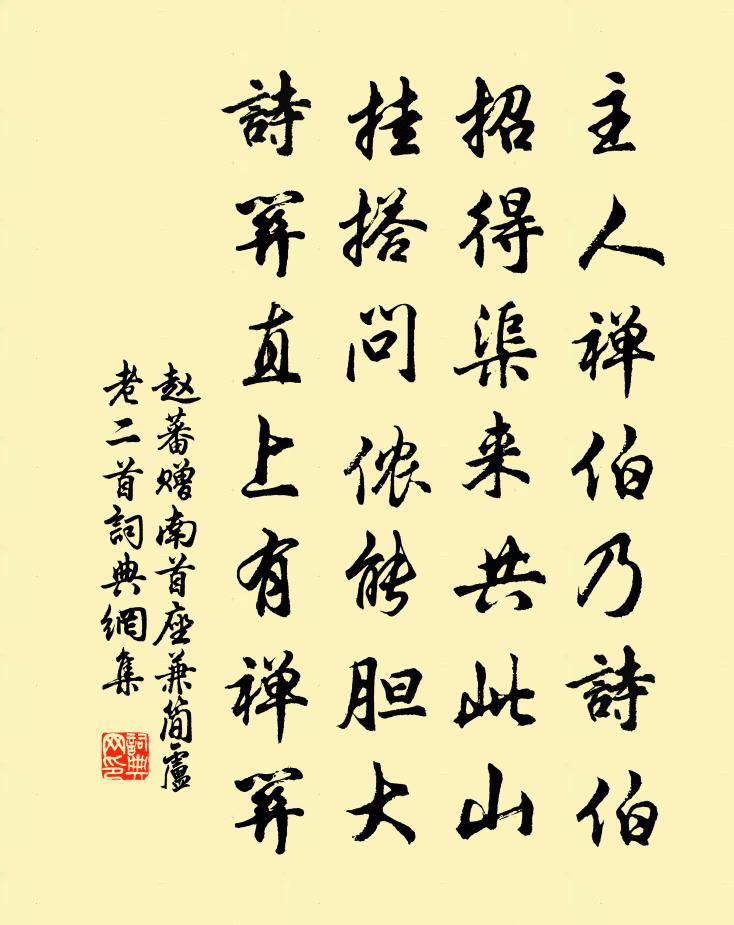 主人禅伯乃詩伯
招得渠来共此山
挂搭問侬能胆大
詩関直上有禅関
赵蕃赠南首座兼简盧
老二首詞典網集
詞典
网印